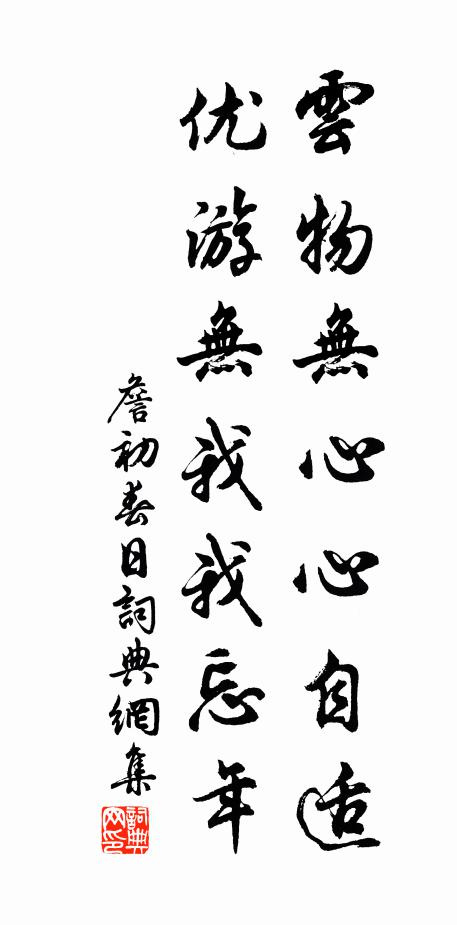 雲物無心心自适
优游無我我忘年
詹初春日詞典網集
詞典網印